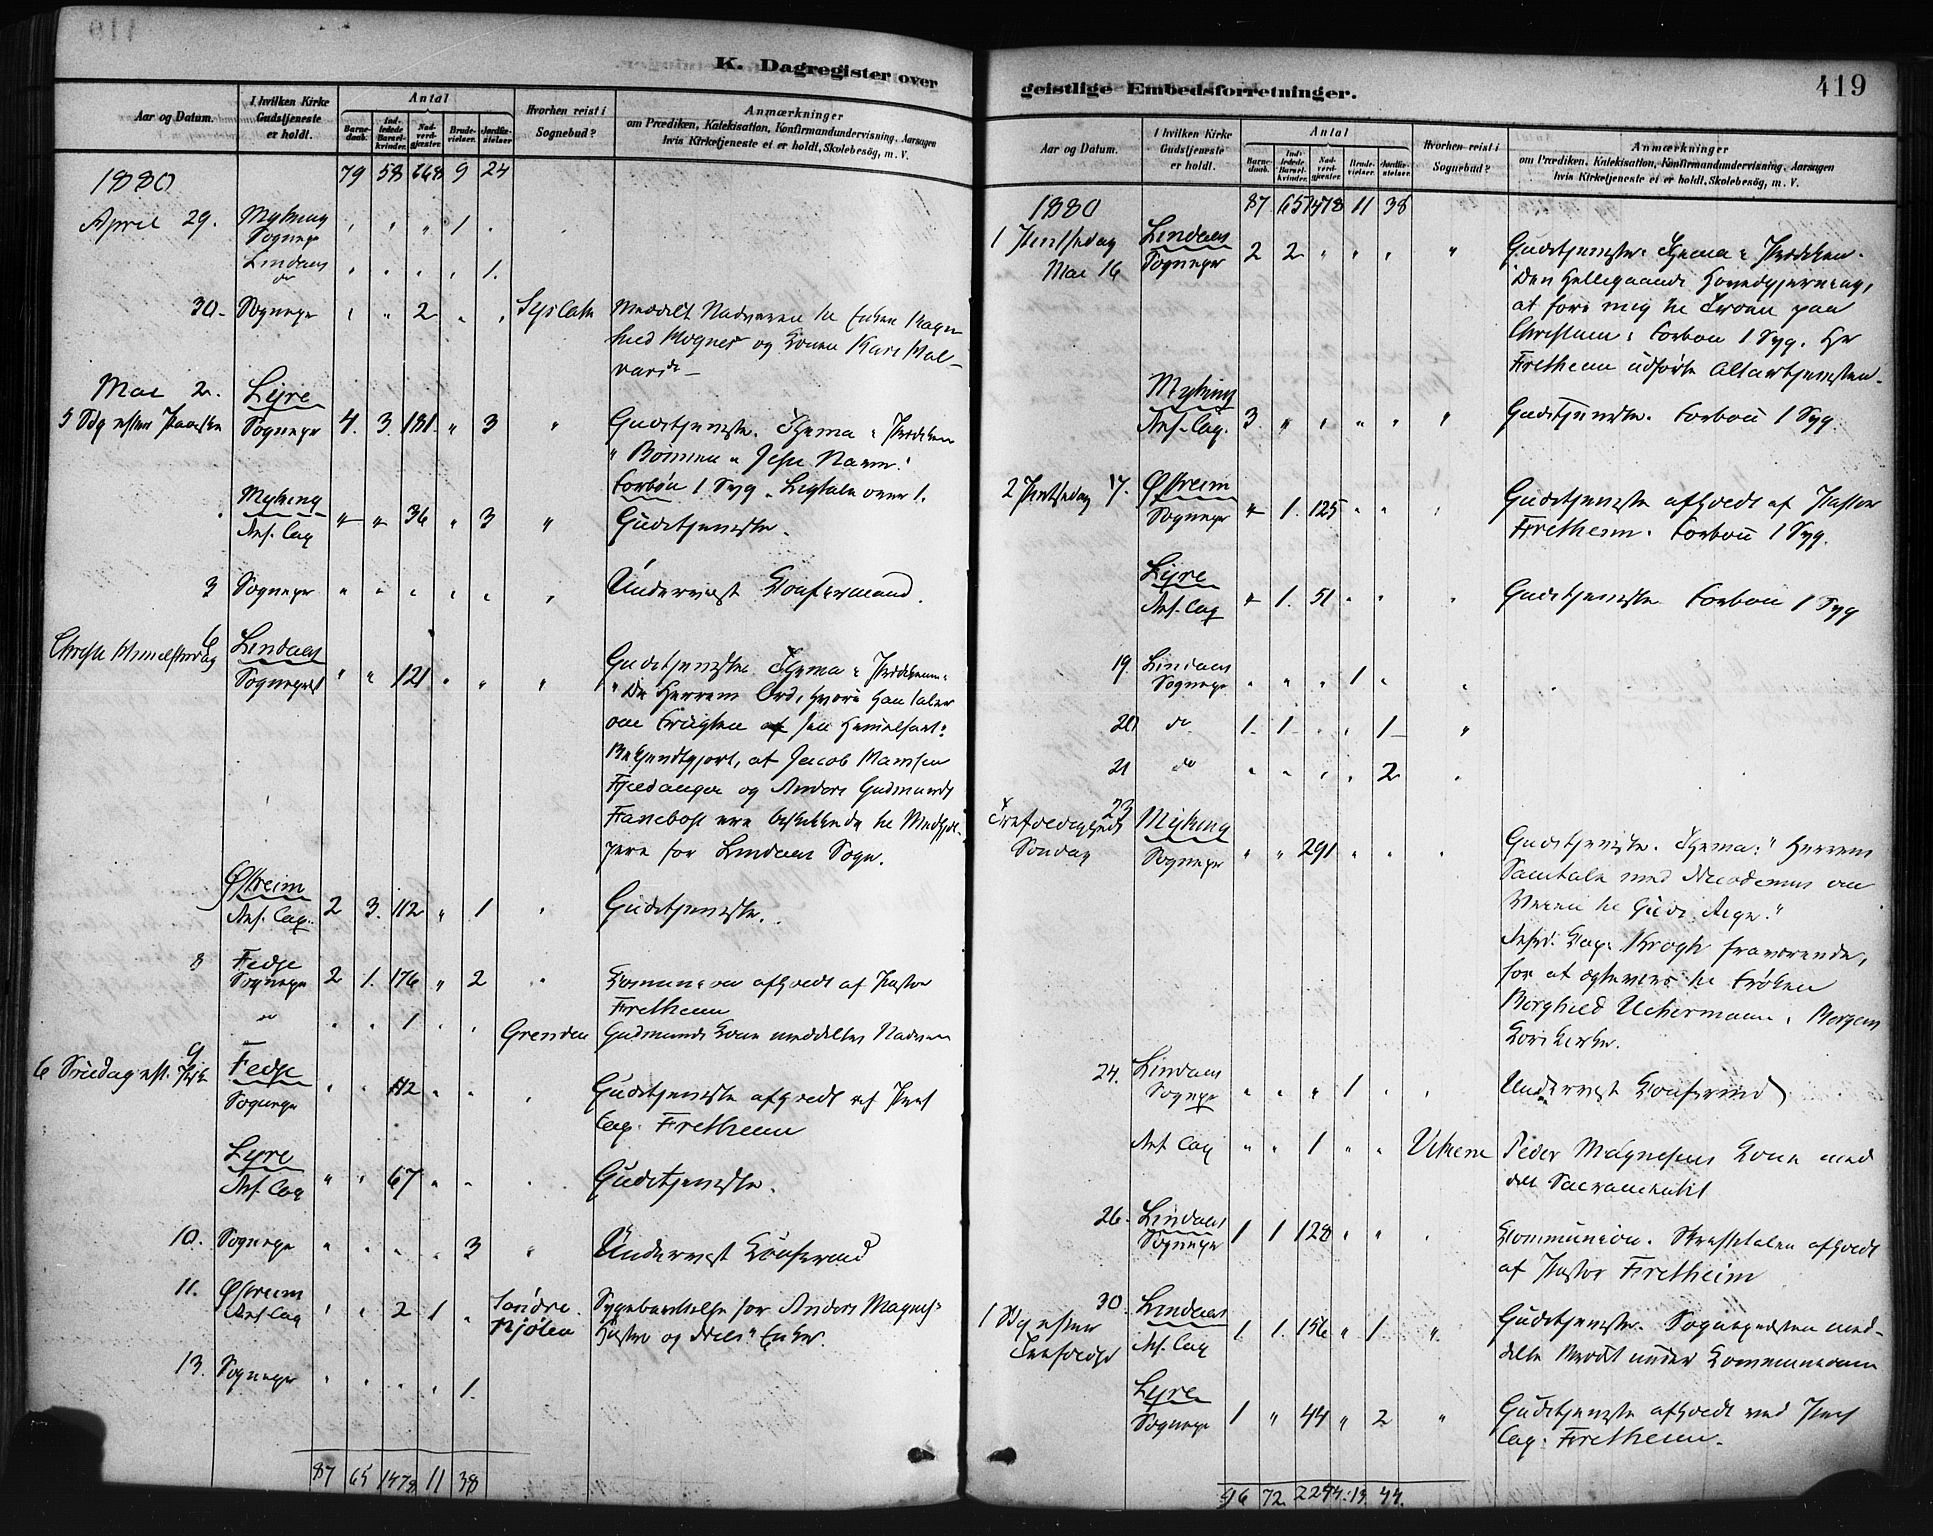 K. Dagregister over
Aar og Datum.
I hvilken Kirke Gudstjeneste er holdt.
Antal
Barne-daab.
Ind-ledede Barsel-kvinder.
Nad-verd-gjæster.
Brude-vielser.
Jordfæ-stelser
Hvorhen reist i Sognebud?
Anmærkninger
om Prædiken, Katekisation, Konfirmandundervisning, Aarsagen
hvis Kirketjeneste ei er holdt, Skolebesøg, m. V.
1880 79 58 668 9 24
April 29. Myking Sognepr " " " 1 "
Lindaas do " " " " 1.
30. Sognepr " " 2 " " Meddelt Nadveren til Enken
og Konen Kari
Mai 2. Lyre
5 Sdg efter Paaske Sognepr 4. 3. 181. " 3 " Gudstjeneste. Thema i Prædiken
"Bønnen i Jesu Navn."
Forbøn 1 Syg. Ligtale over 1.
Myking
Res. Cap " " 36 " 3 " Gudstjeneste.
3 Sognepr " " " " " " Undervist Konfirmand.
6
Christi Himmelfartsdag Lindaas
Sogneprst " " 121 " " " Gudstjeneste Thema i Prædikenen:
"De Herrens Ord, hvori han taler
om Frugten af sin Himmelfart".
Bekjendtgjort, at Jacob Hansen
Fjeldanger og Anders Gudmunds
Fanebost ere beskikkede til Medhjæl-
pere for Lindaas Sogn.
Østreim
Res. Cap. 2 3. 112 " 1 " Gudstjeneste.
8 Fedje
Sognepr 2 1. 176 " 2 " Communion afholdt af Pastor
Fretheim
do " " 1 " " Grenden Gudmunds Kone meddeltes Nadveren
9
6 Søndag eft. Pask Fedje
Sognepr " " 112 " " " Gudstjeneste afholdt af Pers
Cap. Fretheim
Lyre
Res. Cap " " 67 " " " Gudstjeneste.
10. Sognepr " " " " 3 " Undervist Konfirmand
11. Østreim
Res. Cap " " 2 1 " Søndre Kjølen Sygeberettelse for Anders Magnes-
og Niels" Enker.
13. Sognepr " " " " 1.
87 65 1478 11 38
geistlige Embedsforretninger.
419
Aar og Datum.
I hvilken Kirke Gudstjeneste er holdt.
Antal
Barne-daab.
Ind-ledede Barsel-kvinder.
Nad-verd-gjæster.
Brude-vielser.
Jordfæ-stelser.
Hvorhen reist i Sognebud?
Anmærkninger
om Prædiken, Katekisation, Konfirmandundervisning, Aarsagen
hvis Kirketjeneste ei er holdt, Skolebesøg, m. V.
1880 87 65 1478 11 38
1 Pintsedag Lindaas
Mai 16 Sognepr 2 2 " " " " Gudstjeneste. Thema i Prædiken.
"Den Helligaands Hovedgjerning,
at føre mig til Troen paa
Christum". Forbøn 1 Syg. Hr
Fretheim udførte Altartjenesten.
Myking
Res. Cap. 3. " " " " " Gudstjeneste. Forbøn 1 Syg
2 Pintsedag 17. Østreim
Sognepr " 1. 125 " " " Gudstjeneste afholdt af Pastor
Fretheim. Forbøn 1 Syg.
Lyre
Res. Cap " 1. 51 " " " Gudstjeneste Forbøn 1 Syg
19. Lindaas
Sognepr " " " 1 " " "
20 do 1. 1. " " 1 "
21 do " " " " 2 "
23
Trefoldigheds Søndag Myking
Sognepr " " 291 " " " Gudstjeneste. Thema: "Herrens
Samtale med Nicodemus om
Veien til Guds Rige."
Resid. Cap. Krogh fraværende,
for at ægtevies til Frøken
Borghild Uchermann i Bergens
Korskirke.
24. Lindaas
Sognepr " " " 1 " " Undervist Konfirmd
Res Cap " " 1 " " Utkeim Peder Magnesens Kone med
det Sacramentet
26. Lindaas
Sognepr 1 1 128 " " " Communion. Skriftetalen afholdt
af Pastor Fretheim
30. Lindaas
1 Sdg efter Trefoldigh Res. Cap 1. 1. 156 " 1. " Gudstjeneste. Sognepresten med-
delte Brødet under Communionen
Lyre
Sognepr 1 " 44 " 2 " Gudstjeneste afholdt ved Pers
Cap. Fretheim.
96 72. 2274. 13. 44.